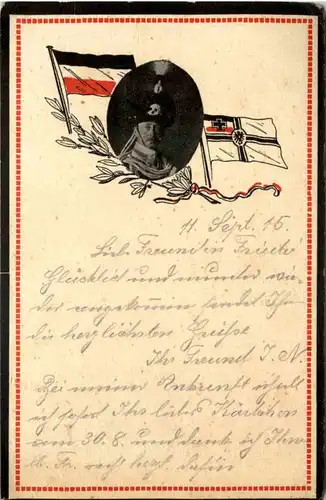 11. Sept. 15.
Lieb. Freundin Friede!
Glücklich und munter wie-
der angekommen sendet Ihn
die herzlichsten Grüße
Ihr Freund J. N.
Bei meiner Ankunft erhielt
ich sofort Ihr liebes Kärtchen
vom 30. 8. und danke ich Ihnen
lb. Fr. recht herzl. dafür